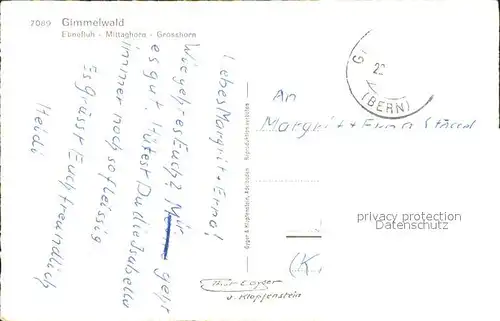 7089 Gimmelwald
Ebnefluh - Mittaghorn - Grosshorn
Liebes Margrit + Erna!
Wie geht es Euch? Mir geht
es gut. Hütest Du die Isabella
immer noch so fleissig
Es grüsst Euch freundlich
Heidi
G
(BERN)
An
Margrit + Erna
privacy protection
Datenschutz
Gyger & Klopfenstein, Adelboden
Reproduktion verboten
(K
Thör e Gyger
v. Klopfenstein